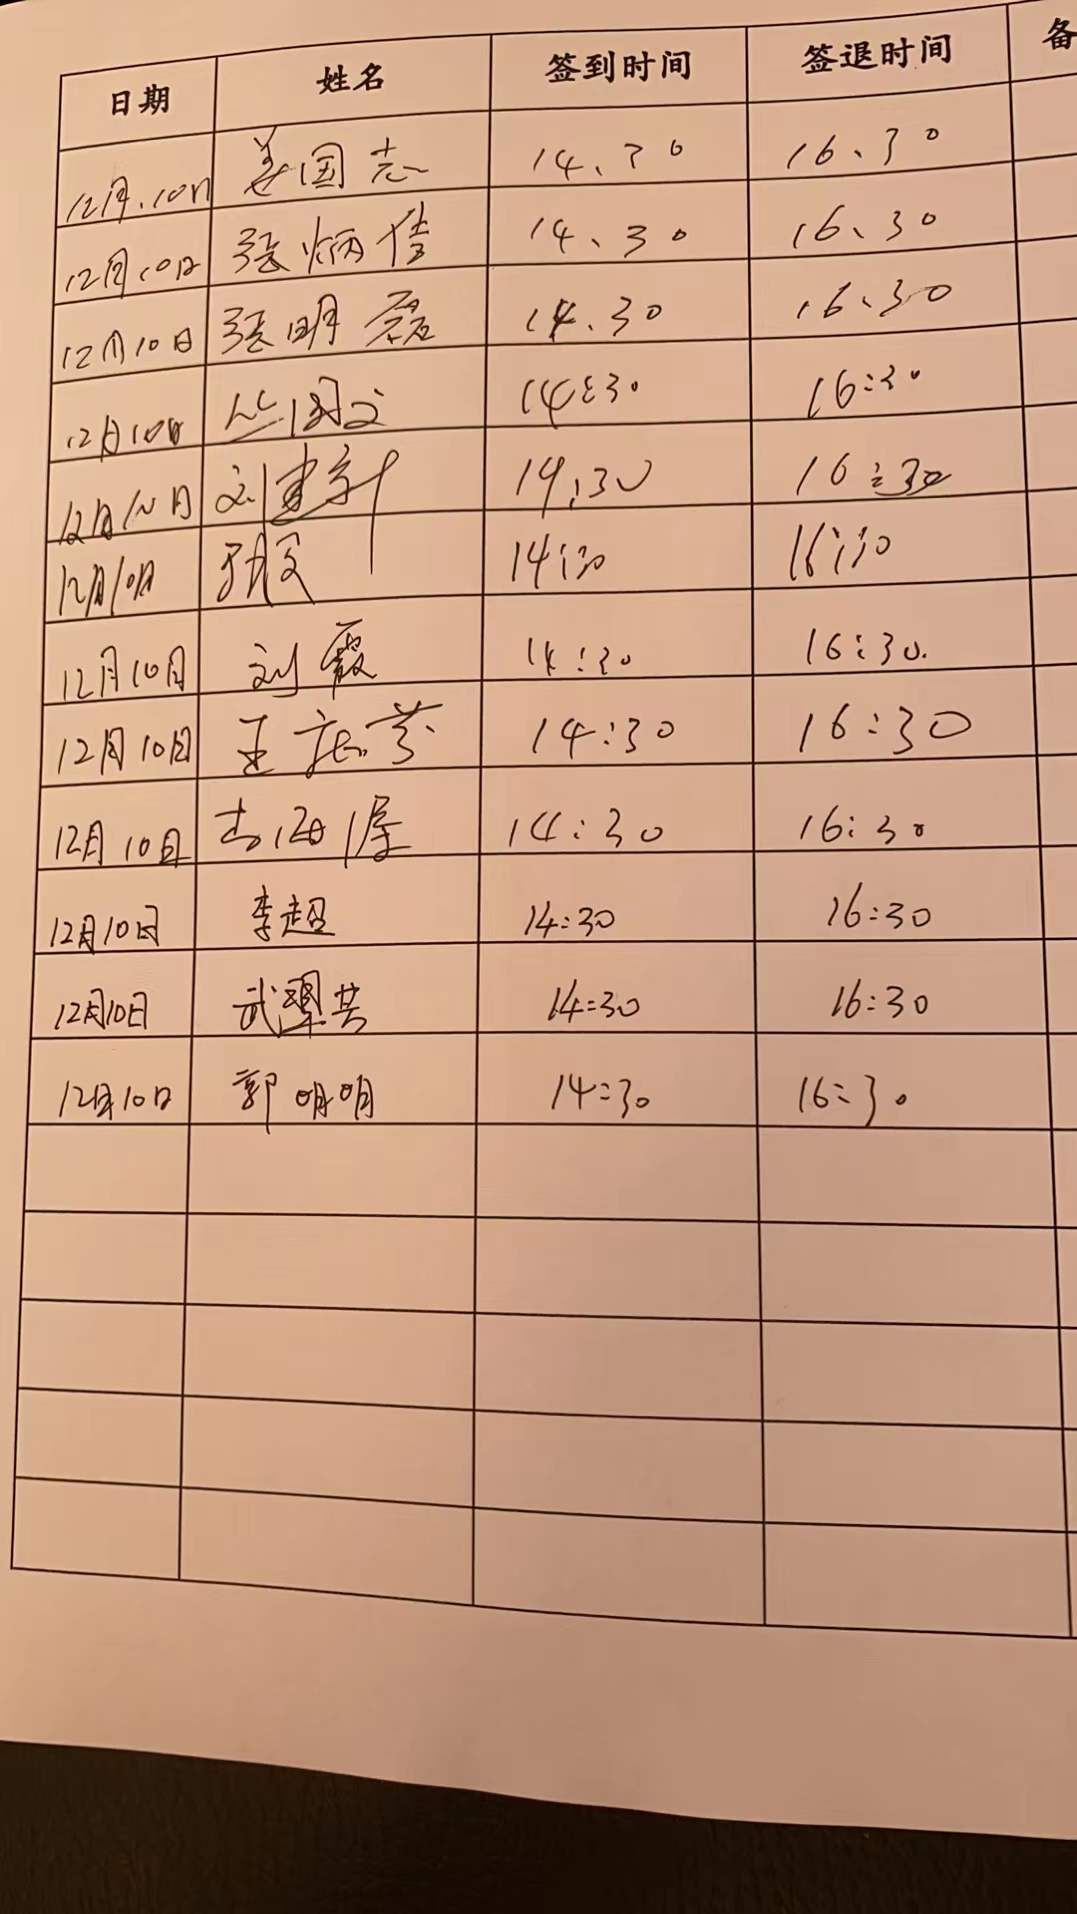 日期 姓名 签到时间 签退时间 备
12月.10日 姜国志 14、30 16、30
12月10日 张炳信 14、30 16、30
12月10日 张明磊 14.30 16.30
12月10日 丛国文 14:30 16:30
12月10日 刘建新 14:30 16:30
12月10日 14:30 16:30
12月10日 刘霞 14:30 16:30.
12月10日 王 芬 14:30 16:30
12月10日 14:30 16:30
12月10日 李超 14:30 16:30
12月10日 武 14:30 16:30
12月10日 郭明明 14:30 16:30